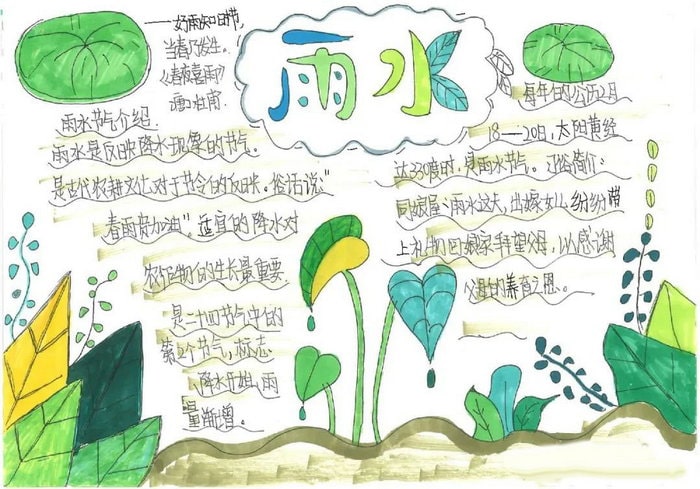 雨水
——好雨知时节,
当春乃发生。
《春夜喜雨》
唐·杜甫
雨水节气介绍.
雨水是反映降水现象的节气。
是古代农耕文化对于节令的反映。俗话说:“
春雨贵如油”,适宜的降水对
农作物的生长最重要.
是二十四节气中的
第2个节气,标志
降水开始,雨
量渐增。
每年的公历2月
18—20日,太阳黄经
达330度时,是雨水节气。习俗简介:
回娘屋:雨水这天,出嫁女儿纷纷带
上礼物回娘家拜望父母,以感谢
父母的养育之恩。